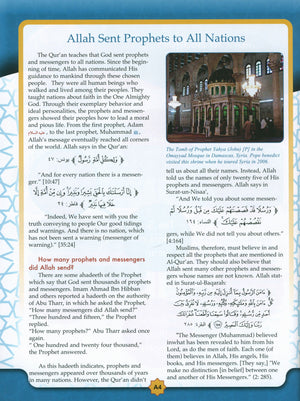 Allah Sent Prophets to All Nations
The Qur'an teaches that God sent prophets
and messengers to all nations. Since the begin-
ning of time, Allah has communicated His
guidance to mankind through these chosen
people. They were all human beings who
walked and lived among their people. They
taught nations about faith in the One Almighty
God. Through their exemplary behavior and
ideal personalities, the prophets and messen-
gers showed their peoples how to lead a moral
and pious life. From the first prophet, Adam
to the last prophet, Muhammad
Allah's message eventually reached all corners
of the world. Allah says in the Qur'an:
﴿ وَلِكُلِّ أُمَّةٍ رَسُولٌ ﴾ يونس: ٤٧
"And for every nation there is a messen-
ger." [10:47]
﴿ إِنَّا أَرْسَلْنَاكَ بِالْحَقِّ بَشِيرًا وَنَذِيرًا وَإِنْ مِنْ أُمَّةٍ إِلَّا
خَلَا فِيهَا نَذِيرٌ ﴾ فاطر: ٢٤
"Indeed, We have sent with you the
truth conveying to people Our good tidings
and warnings. And there is no nation, which
has not been sent a warning (messenger of
warning)." [35:24]
How many prophets and messengers
did Allah send?
There are some ahadeeth of the Prophet
which say that God sent thousands of prophets
and messengers. Imam Ahmad Ibn Hibban
and others reported a hadeeth on the authority
of Abu Tharr, in which he asked the Prophet,
"How many messengers did Allah send?"
"Three hundred and fifteen," the Prophet
replied.
"How many prophets?" Abu Tharr asked once
again.
" One hundred and twenty four thousand,"
the Prophet answered.
As this hadeeth indicates, prophets and
messengers appeared over thousands of years
in many nations. However, the Qur'an didn't
The Tomb of Prophet Yahya (John) [P] in the
Omayyad Mosque in Damascus, Syria. Pope benedict
visited this shrine when he toured Syria in 2006.
tell us about all their names. Instead, Allah
told us the names of only twenty five of His
prophets and messengers. Allah says in
Surat-un-Nisaa',
"And We told you about some messen-
﴿ وَرُسُلًا قَدْ قَصَصْنَاهُمْ عَلَيْكَ مِنْ قَبْلُ وَرُسُلًا لَمْ
نَقْصُصْهُمْ عَلَيْكَ
gers, while We did not tell you about others."
[4:164]
Muslims, therefore, must believe in and
respect all the prophets that are mentioned in
Al-Qur'an. They should also believe that
Allah sent many other prophets and messen-
gers whose names are not known. Allah stat-
ed in Surat-ul-Baqarah,
﴿ آمَنَ الرَّسُولُ بِمَا أُنْزِلَ إِلَيْهِ مِنْ رَبِّهِ وَالْمُؤْمِنُونَ كُلٌّ
آمَنَ بِاللَّهِ وَمَلَائِكَتِهِ وَكُتُبِهِ وَرُسُلِهِ لَا نُفَرِّقُ بَيْنَ أَحَدٍ مِنْ
رُسُلِهِ ﴾ البقرة: ٢٨٥
"The Messenger (Muhammad) believed
inwhat has been revealed to him from his
Lord, as do the men of faith. Each one (of
them) believes in Allah, His angels, His
books, and His messengers. [They say,] "We
make no distinction [in belief] between one
and another of His Messengers." (2: 285).
A4